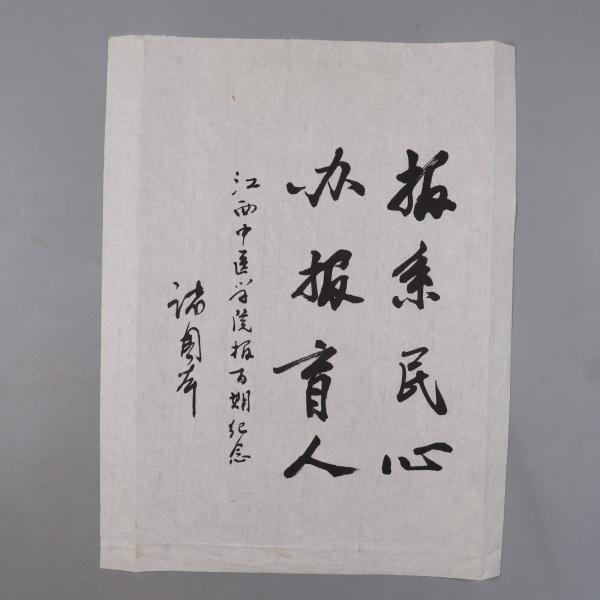 报系民心
办报育人
江西中医学院报百期纪念
诸国本